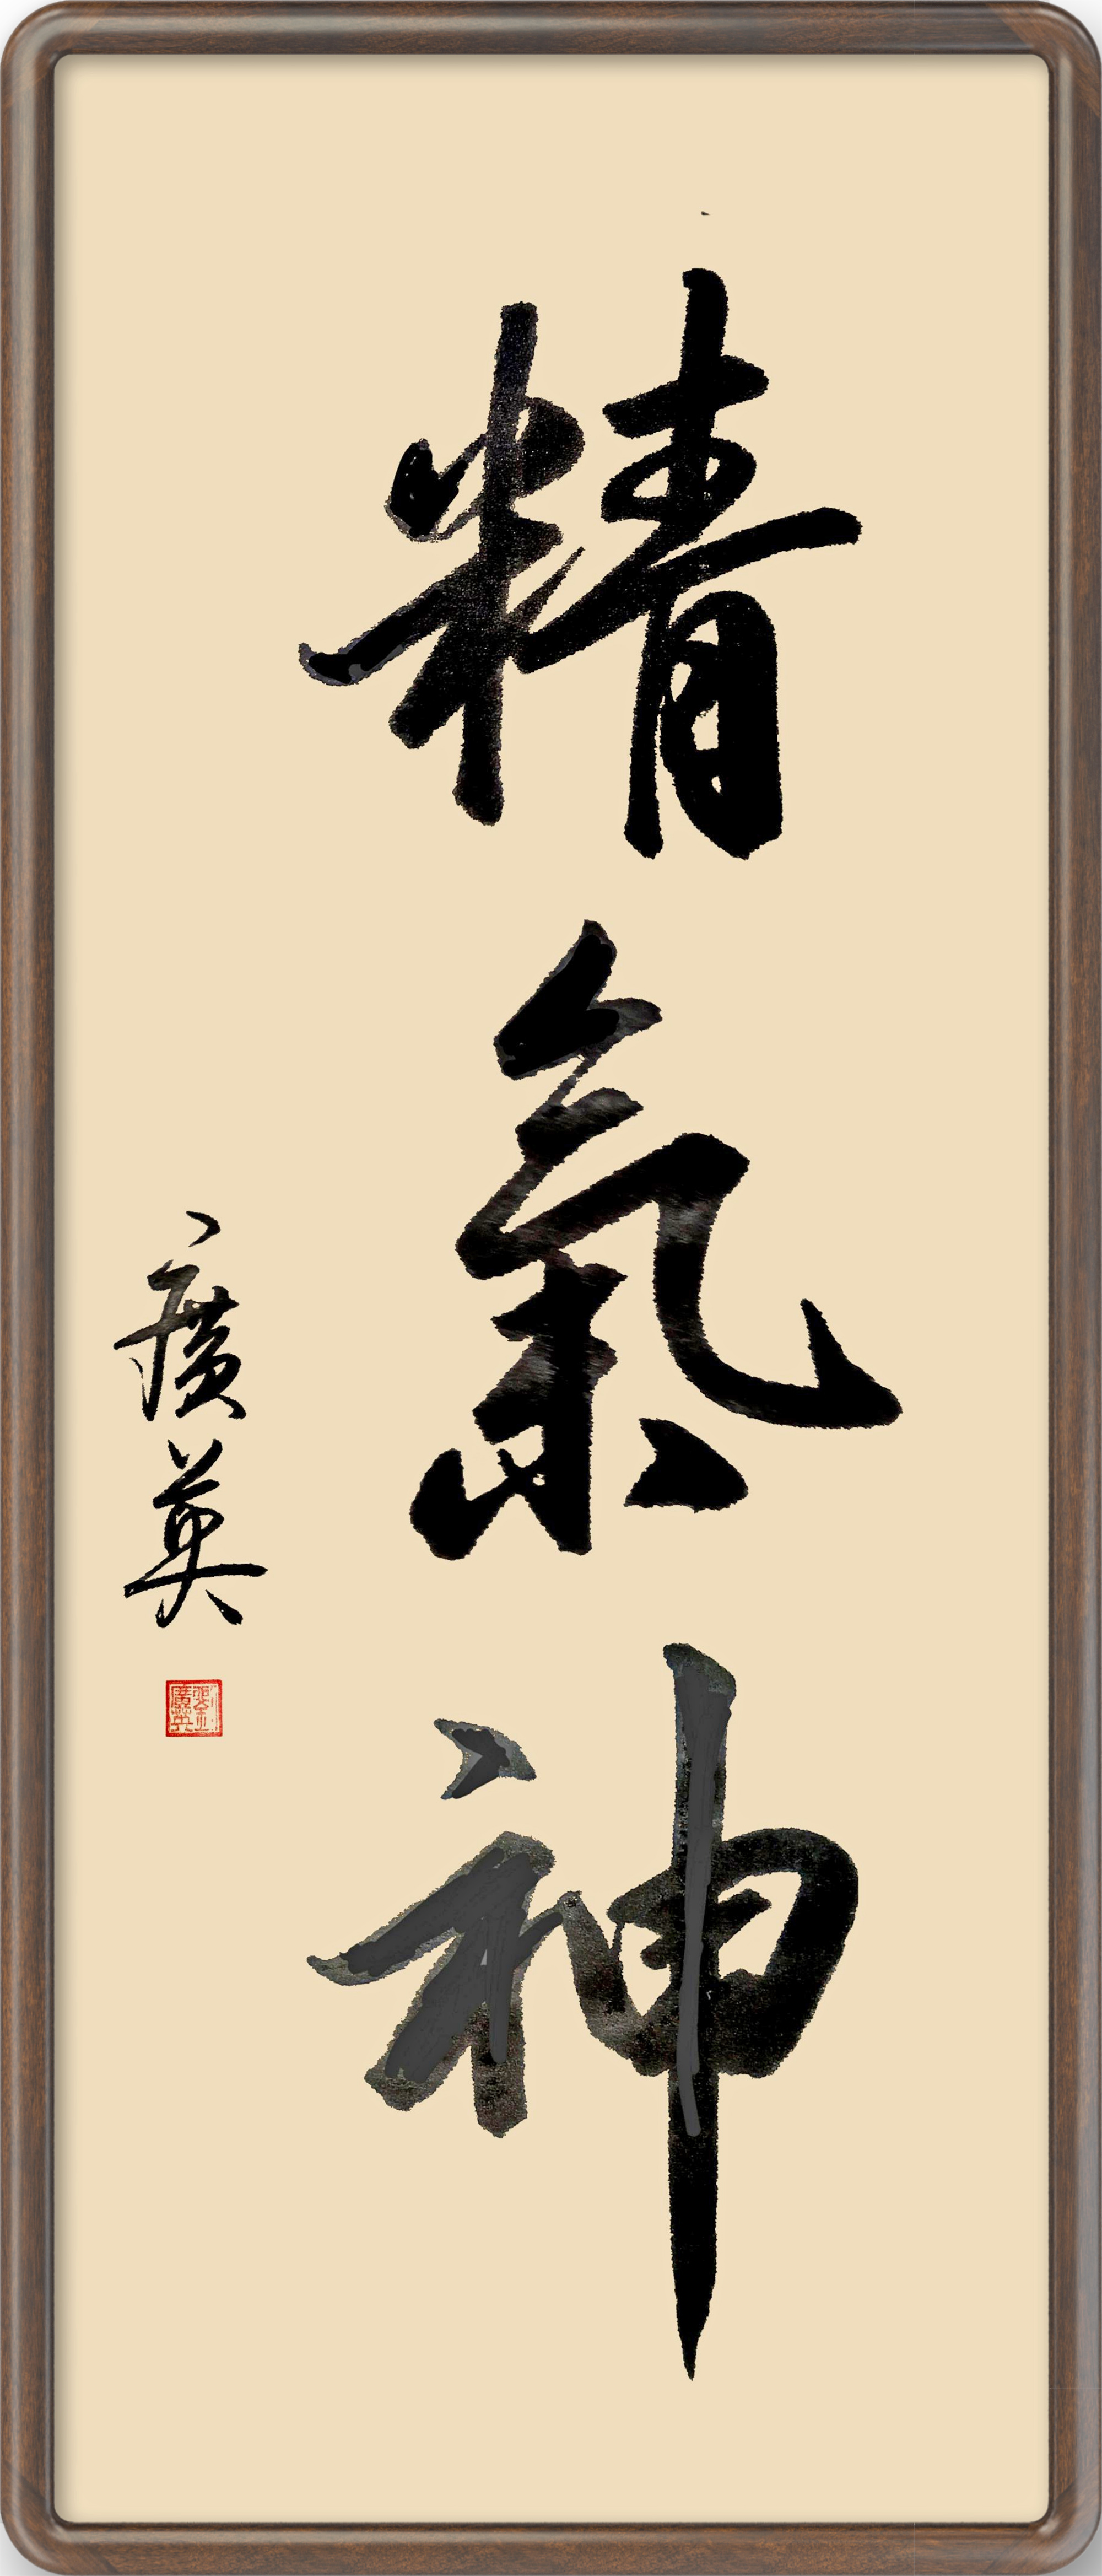 精氣神
廣英
劉廣英